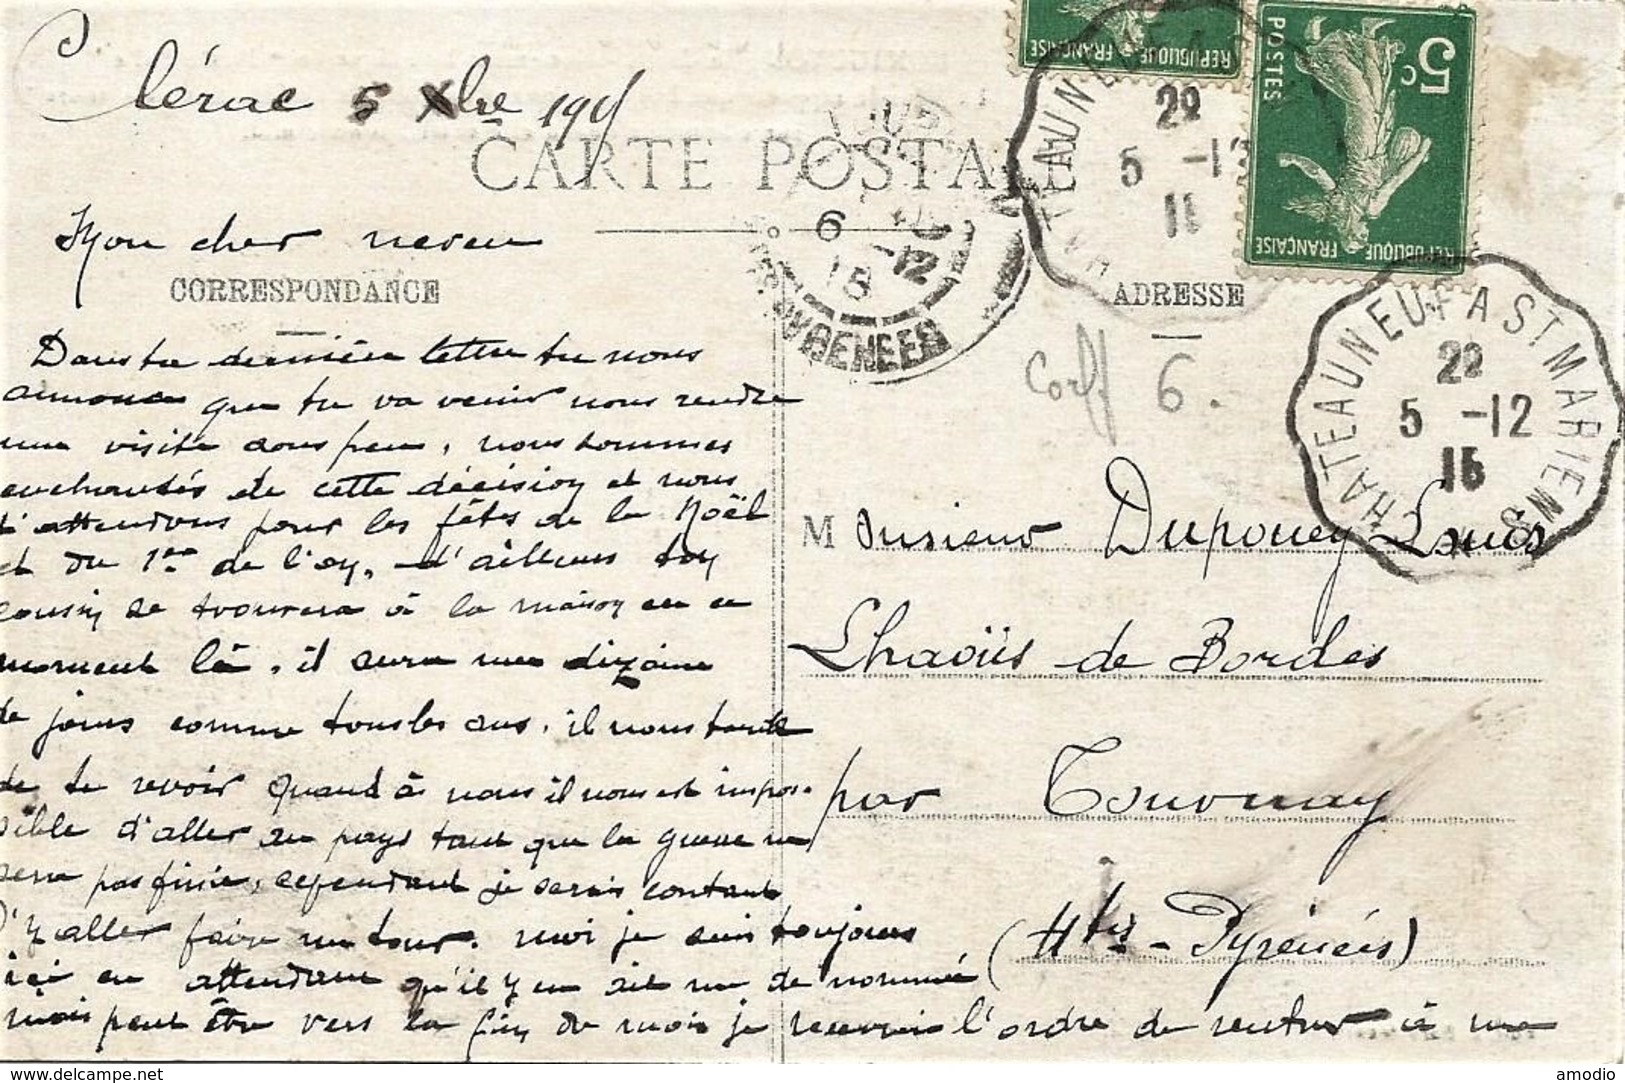 Clérac 5 Xbre 1915
CARTE POSTALE
Mon cher neveu
CORRESPONDANCE
Dans ta dernière lettre tu nous
annonce que tu va venir nous rendre
une visite sous peu, nous sommes
enchantés de cette décision et nous
t'attendons pour les fêtes de la Noël
et du 1er de l'an, d'ailleurs ton
cousin se trouvera à la maison en ce
moment là, il aura une dizaine
de jours comme tous les ans. il nous tarde
de te revoir quand à nous il nous est impos-
sible d'aller au pays tant que la guerre ne
sera pas finie, cependant je serais content
d'y aller faire un tour. moi je suis toujours
ici en attendant qu'il y en ait un de nommé
mais peut être vers la fin du mois je recevrai l'ordre de rentrer à
ADRESSE
Corff 6.
Monsieur Dupouey Louis
Lhaoüs de Bordes
par Tournay
(Htes-Pyrénées)
5c
POSTES
REPUBLIQUE FRANÇAISE
REPUBLIQUE FRANÇAISE
22
5 -12
15
CHATEAUNEUF A ST MARIENS
6 -12
15
PYRENEES
https://www.delcampe.net
amodio